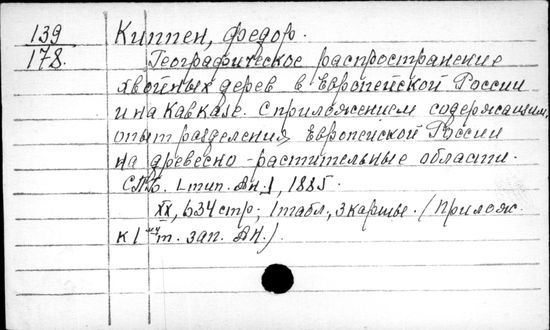 139
178.
Киппен, Федор.
Географическое распространение
хвойных дерев в Европейской России
и на Кавказе. С приложением содержащим,
опыт разделения Европейской России
на древесно-растительные области.
СПб. тип. АН., 1885.
XX, 634 стр; 1 табл., 3 картье. (Прилож.
к т. зап. АН.)